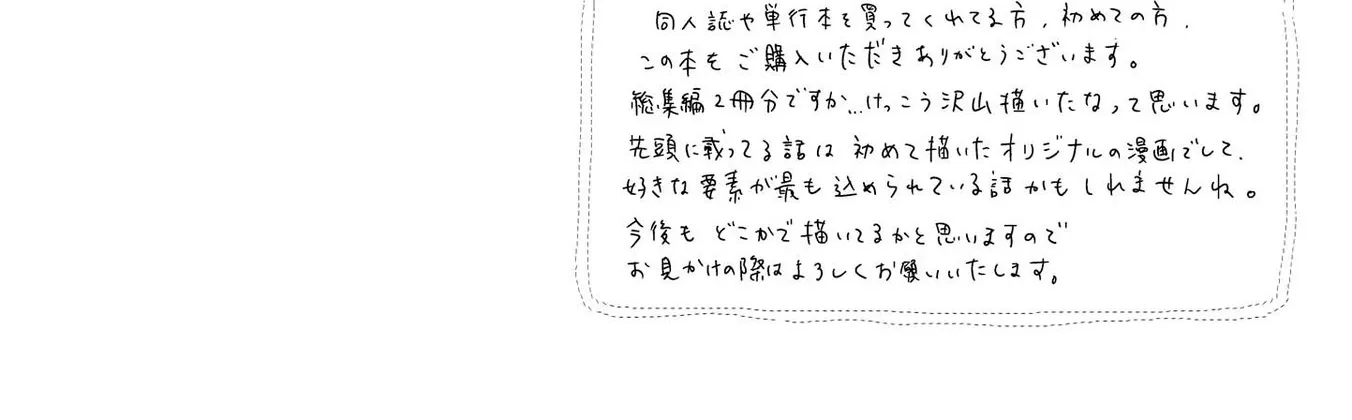 同人誌や単行本を買ってくれてる方、初めての方、
この本をご購入いただきありがとうございます。
総集編2冊分ですが…けっこう沢山描いたなって思います。
先頭に載ってる話は初めて描いたオリジナルの漫画でして、
好きな要素が最も込められている話かもしれませんね。
今後もどこかで描いてるかと思いますので
お見かけの際はよろしくお願いいたします。